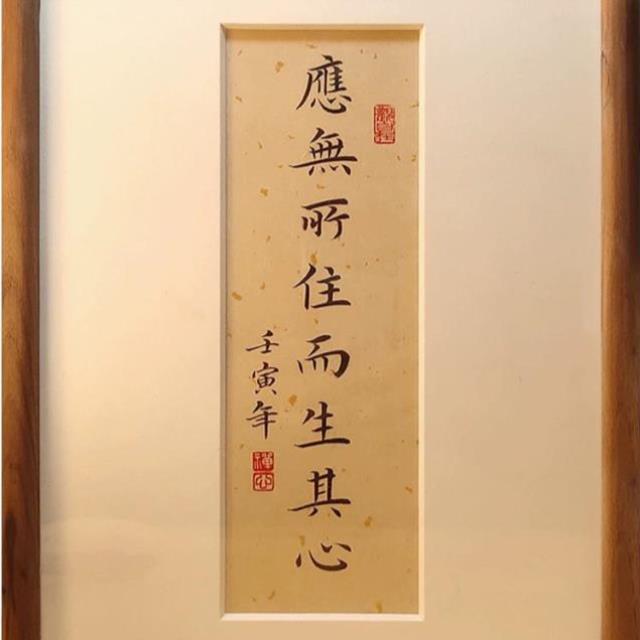 應無所住而生其心
壬寅年